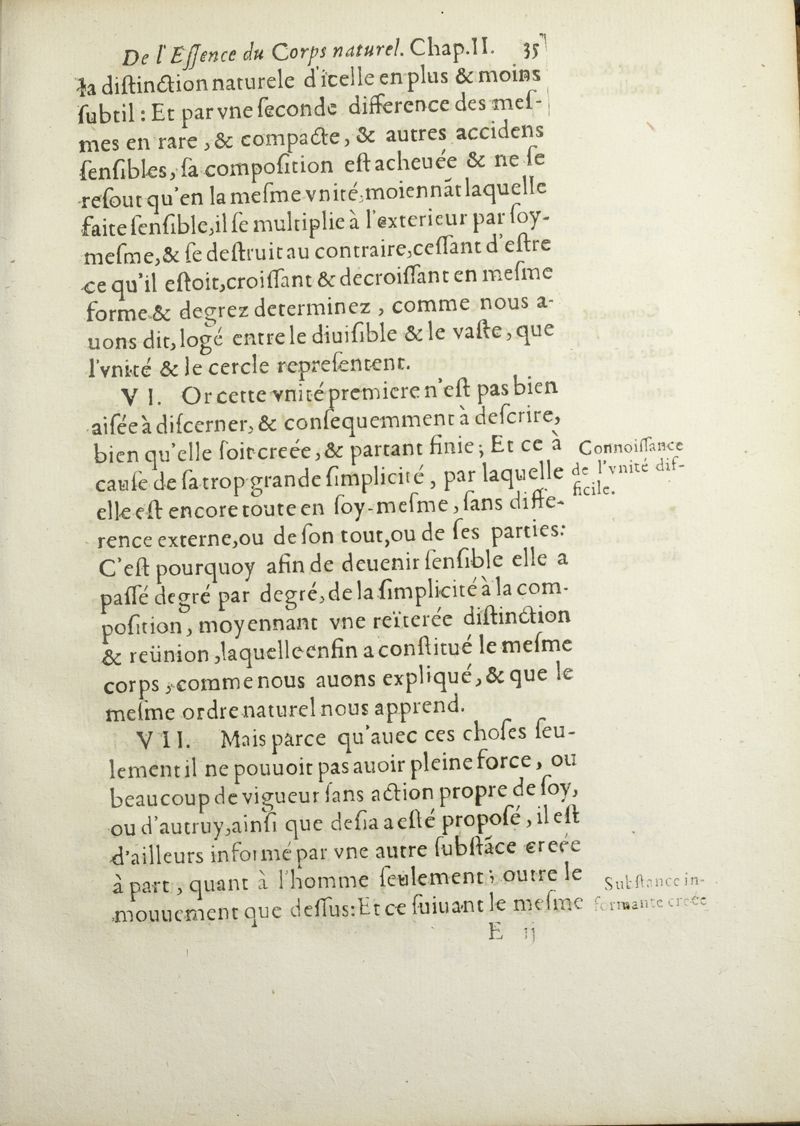 De l'Eſſence du Corps naturel. Chap.II. 35
la diſtinction naturele d'icelle en plus & moins
ſubtil : Et par vne ſeconde difference des meſ-
mes en rare , & compacte, & autres accidens
ſenſibles, ſa compoſition eſt acheuée & ne ſe
reſout qu'en la meſme vnité, moiennãt laquelle
faite ſenſible, il ſe multiplie à l'exterieur par ſoy-
meſme, & ſe deſtruit au contraire, ceſſant d'eſtre
ce qu'il eſtoit, croiſſant & decroiſſant en meſme
forme & degrez determinez , comme nous a-
uons dit, logé entre le diuiſible & le vaſte, que
l'vnité & le cercle repreſentent.
V I. Or cette vnité premiere n'eſt pas bien
aiſée à diſcerner, & conſequemment à deſcrire,
bien qu'elle ſoit creée, & partant finie ; Et ce à
cauſe de ſa trop grande ſimplicité , par laquelle
elle eſt encore toute en ſoy-meſme, ſans diffe-
rence externe, ou de ſon tout, ou de ſes parties:
C'eſt pourquoy afin de deuenir ſenſible elle a
paſſé degré par degré, de la ſimplicité à la com-
poſition, moyennant vne reïterée diſtinction
& reünion, laquelle enfin a conſtitué le meſme
corps , comme nous auons expliqué, & que le
meſme ordre naturel nous apprend.
V I I. Mais parce qu'auec ces choſes ſeu-
lement il ne pouuoit pas auoir pleine force, ou
beaucoup de vigueur ſans action propre de ſoy,
ou d'autruy, ainſi que deſia a eſté propoſé, il eſt
d'ailleurs informé par vne autre ſubſtãce creée
à part , quant à l'homme ſeulement ; outre le
mouuement que deſſus: Et ce ſuiuant le meſme
E ij
Connoiſſance
de l'vnité dif-
ficile.
Subſtance in-
formante creée